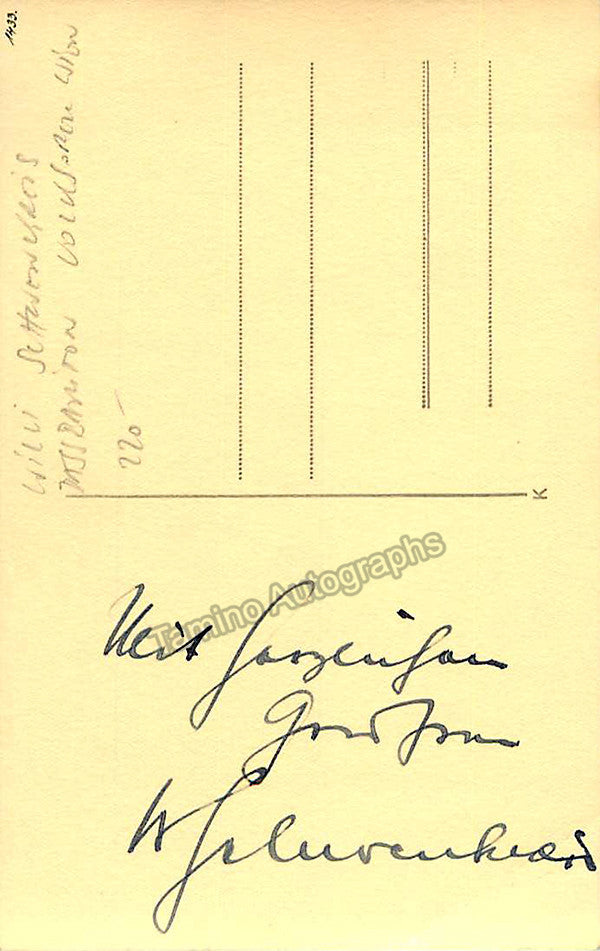 1433.
WILLI SCHWENKREIS
BASSBARITON VOLKSOPER WIEN
220-
K
Tamino Autographs
Mit herzlichen
Grüßen
W Schwenkreis